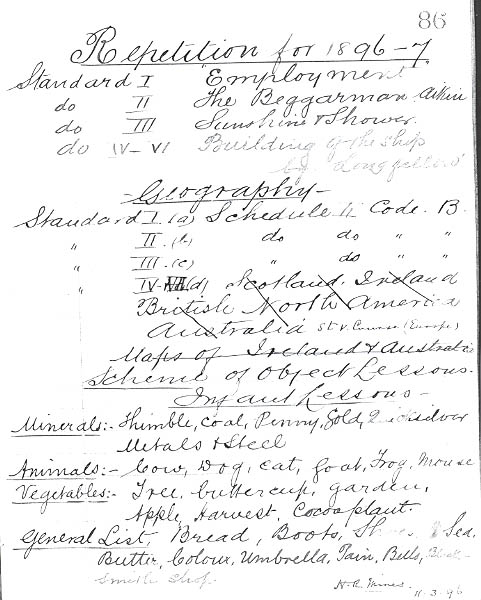 86
Repetition for 1896-7
Standard I "Employment"
do II The Beggarman Aikin
do III Sunshine & Shower.
do IV-VI Building of the Ship
by Longfellow
Geography
Standard I. (a) Schedule II Code. B.
" II. (b) do do " "
" III. (c) " do " "
" IV-VII (d) Scotland, Ireland
British North America
Australia St V. (Europe)
Maps of Ireland & Australia
Scheme of Object Lessons.
Infant Lessons
Minerals:- Thimble, Coal, Penny, Gold, Quicksilver
Metals & Steel
Animals:- Cow, Dog, Cat, Goat, Frog, Mouse
Vegetables:- Tree, buttercup, garden,
Apple, Harvest, Cocoaplant.
General List, Bread, Boots, Sea,
Butter, Colour, Umbrella, Pain, Bells, Black-
smith shop.
11.3.96